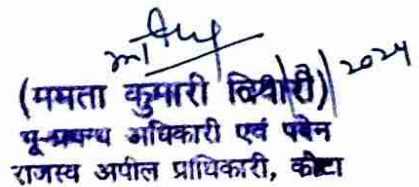 2024
(ममता कुमारी तिवारी)
भू-प्रबन्ध अधिकारी एवं पदेन
राजस्व अपील प्राधिकारी, कोटा